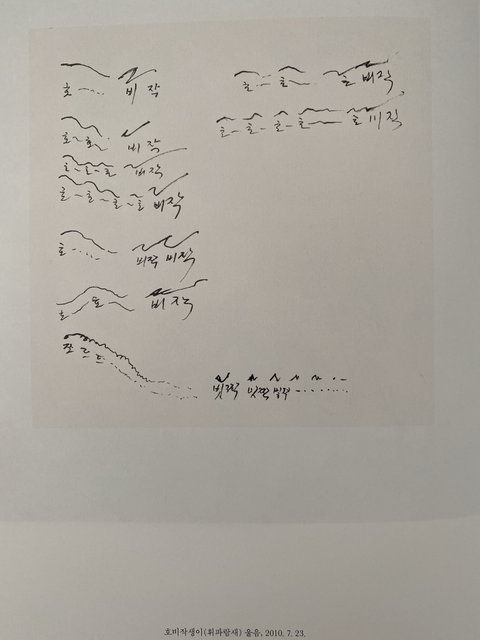 호 비 작
호 호 비 작
호 호 호 비 작
호 호 호 호 비작
호 비작 비작
호 호 비 작
쪼 르 르
호 호 호 비작
호 호 호 호 호 비작
빗쭉 빗쭉 빌쭉
호비작생이(휘파람새) 울음, 2010. 7. 23.